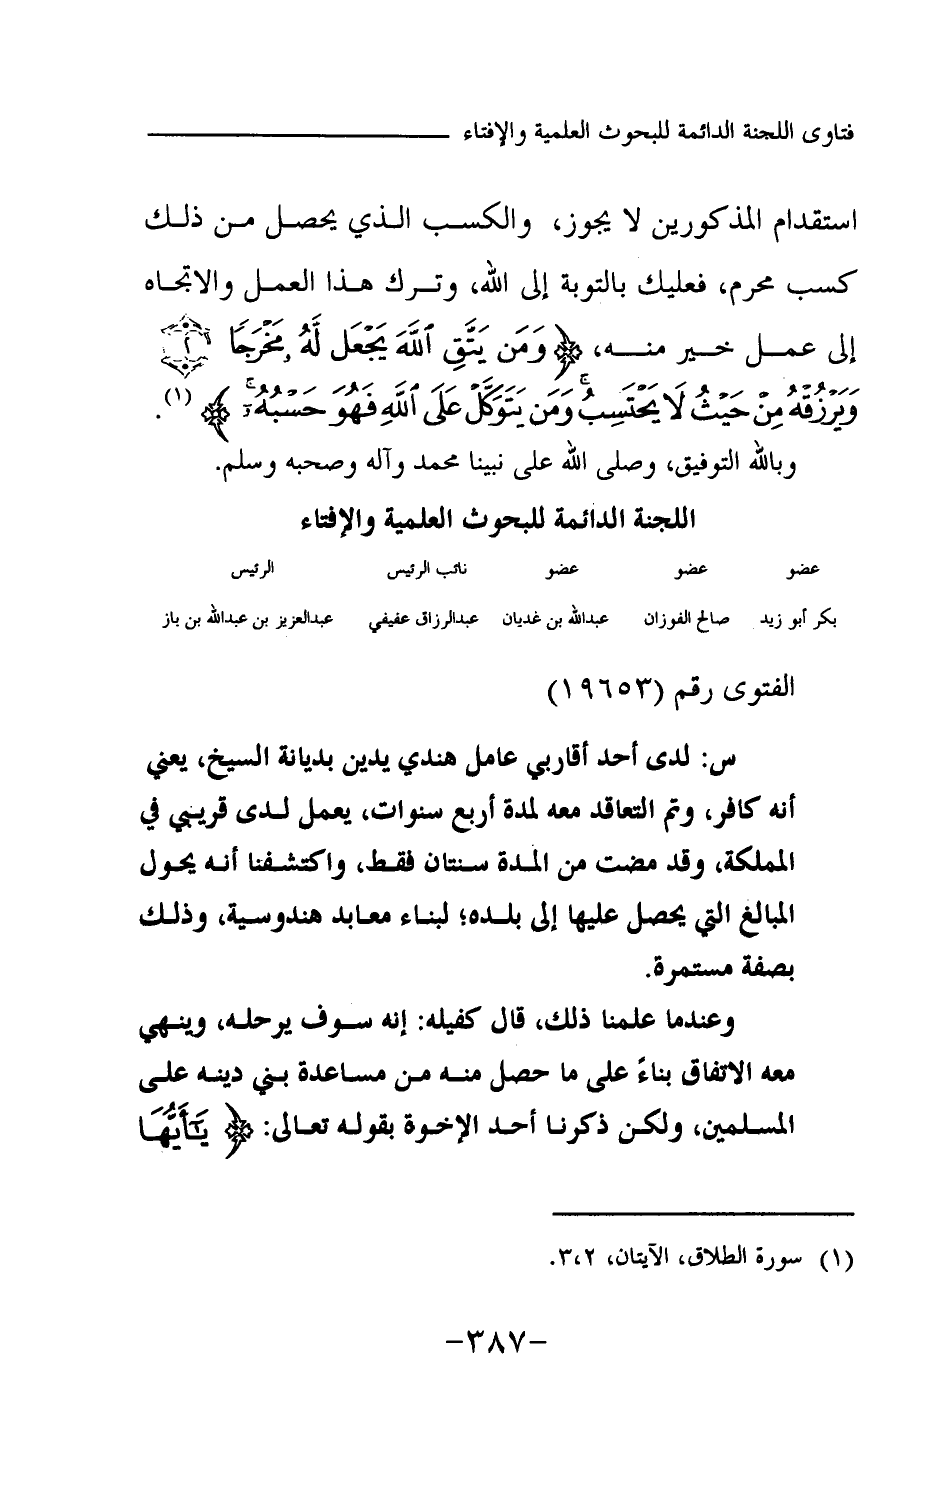 فتاوى اللجنة الدائمة للبحوث العلمية والإفتاء
استقدام المذكورين لا يجوز، والكسب الذي يحصل من ذلك
كسب محرم، فعليك بالتوبة إلى الله، وترك هذا العمل والاتجاه
إلى عمل خير منه، ﴿ وَمَن يَتَّقِ ٱللَّهَ يَجْعَل لَّهُۥ مَخْرَجًا ۝٢
وَيَرْزُقْهُ مِنْ حَيْثُ لَا يَحْتَسِبُ ۚ وَمَن يَتَوَكَّلْ عَلَى ٱللَّهِ فَهُوَ حَسْبُهُۥٓ ۚ ﴾ (١).
وبالله التوفيق، وصلى الله على نبينا محمد وآله وصحبه وسلم.
اللجنة الدائمة للبحوث العلمية والإفتاء
عضو عضو عضو نائب الرئيس الرئيس
بكر أبو زيد صالح الفوزان عبدالله بن غديان عبدالرزاق عفيفي عبدالعزيز بن عبدالله بن باز
الفتوى رقم (١٩٦٥٣)
س: لدى أحد أقاربي عامل هندي يدين بديانة السيخ، يعني
أنه كافر، وتم التعاقد معه لمدة أربع سنوات، يعمل لدى قريبي في
المملكة، وقد مضت من المدة سنتان فقط، واكتشفنا أنه يحول
المبالغ التي يحصل عليها إلى بلده؛ لبناء معابد هندوسية، وذلك
بصفة مستمرة.
وعندما علمنا ذلك، قال كفيله: إنه سوف يرحله، وينهي
معه الاتفاق بناءً على ما حصل منه من مساعدة بني دينه على
المسلمين، ولكن ذكرنا أحد الإخوة بقوله تعالى: ﴿ يَٰٓأَيُّهَا
(١) سورة الطلاق، الآيتان، ٣،٢.
-٣٨٧-